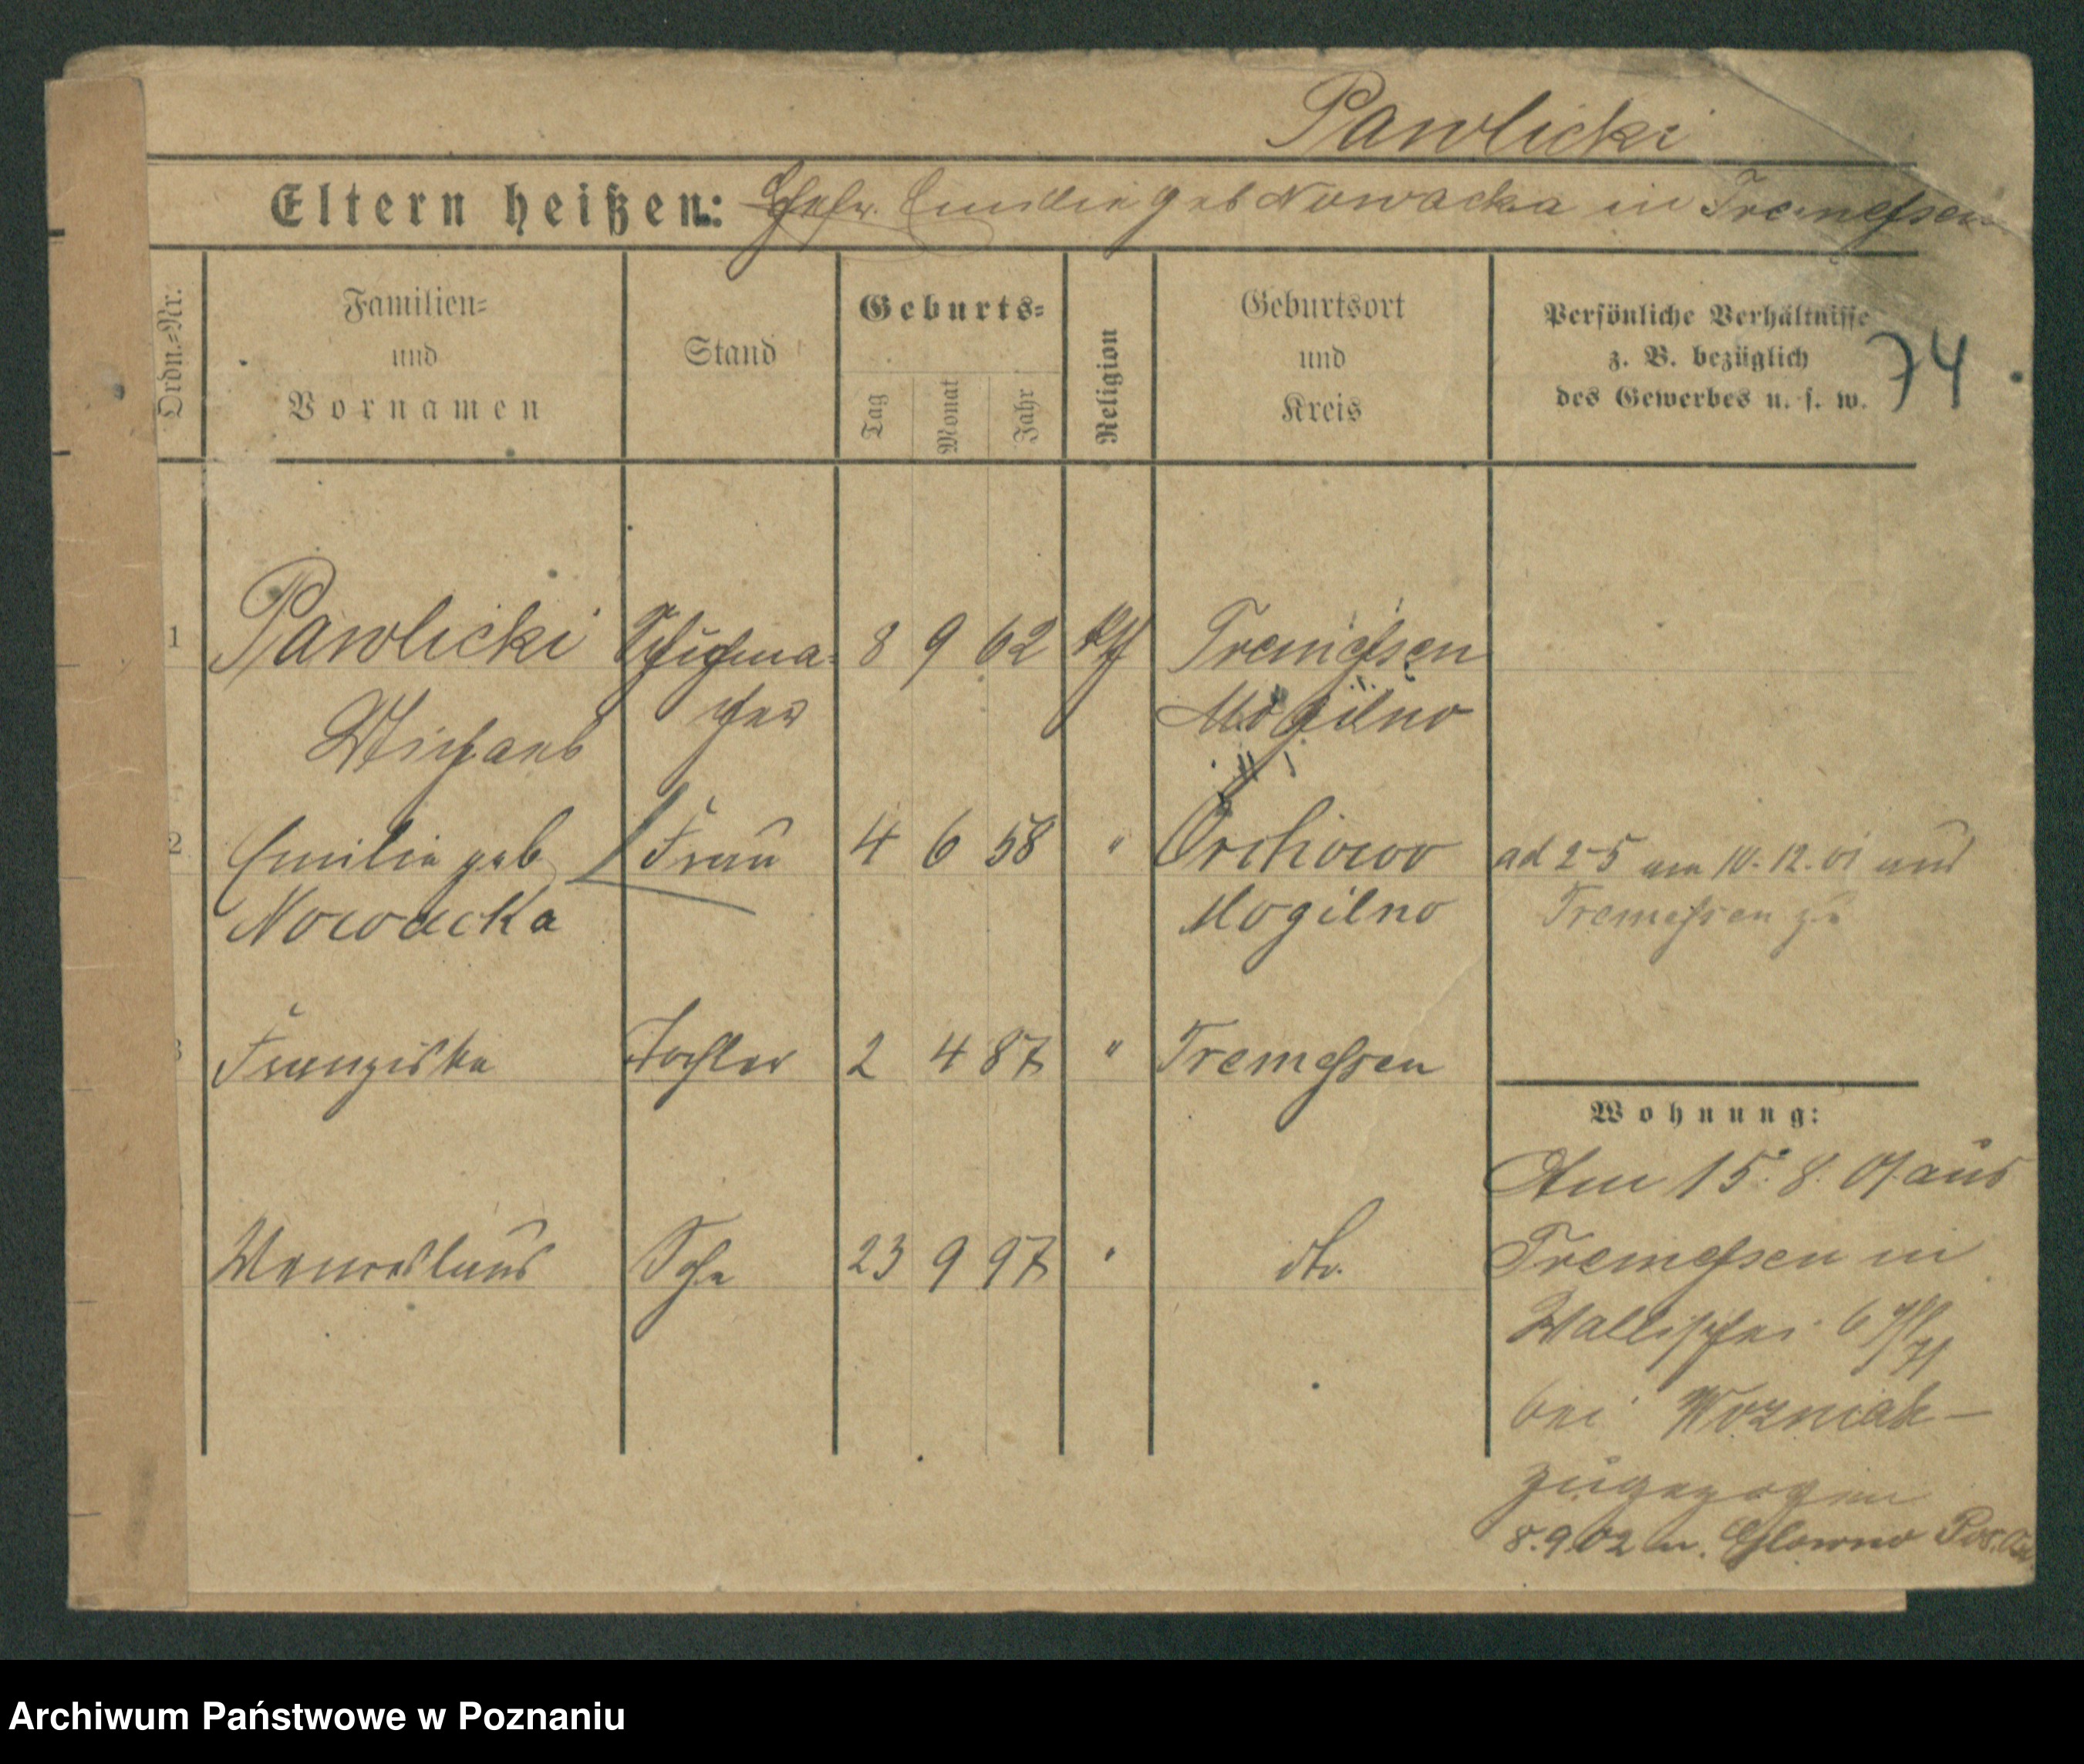 Pawlicki
Eltern heißen: Ehefr. Emilie geb Nowacka in Tremessen
Ordn.-Nr.
Familien-
und
Vornamen
Stand
Geburts-
Tag
Monat
Jahr
Religion
Geburtsort
und
Kreis
Persönliche Verhältnisse
z. B. bezüglich
des Gewerbes u. s. w.
74
1 Pawlicki Schuhma- 8 9 62 kth Tremessen
Michael cher Mogilno
2 Emilie geb Frau 4 6 58 " Orchowo ad 2-5 am 10.12.01 aus
Nowacka Mogilno Tremessen zu
3 Franziska Tochter 2 4 87 " Tremessen
Wohnung:
Am 15.8.01 aus
Wenceslaus Sohn 23 9 97 " dto. Tremessen in
Wallischei 6
bei Wozniak -
zugezogen
8.9.02 n. Glowno Pos. Ost
Archiwum Państwowe w Poznaniu